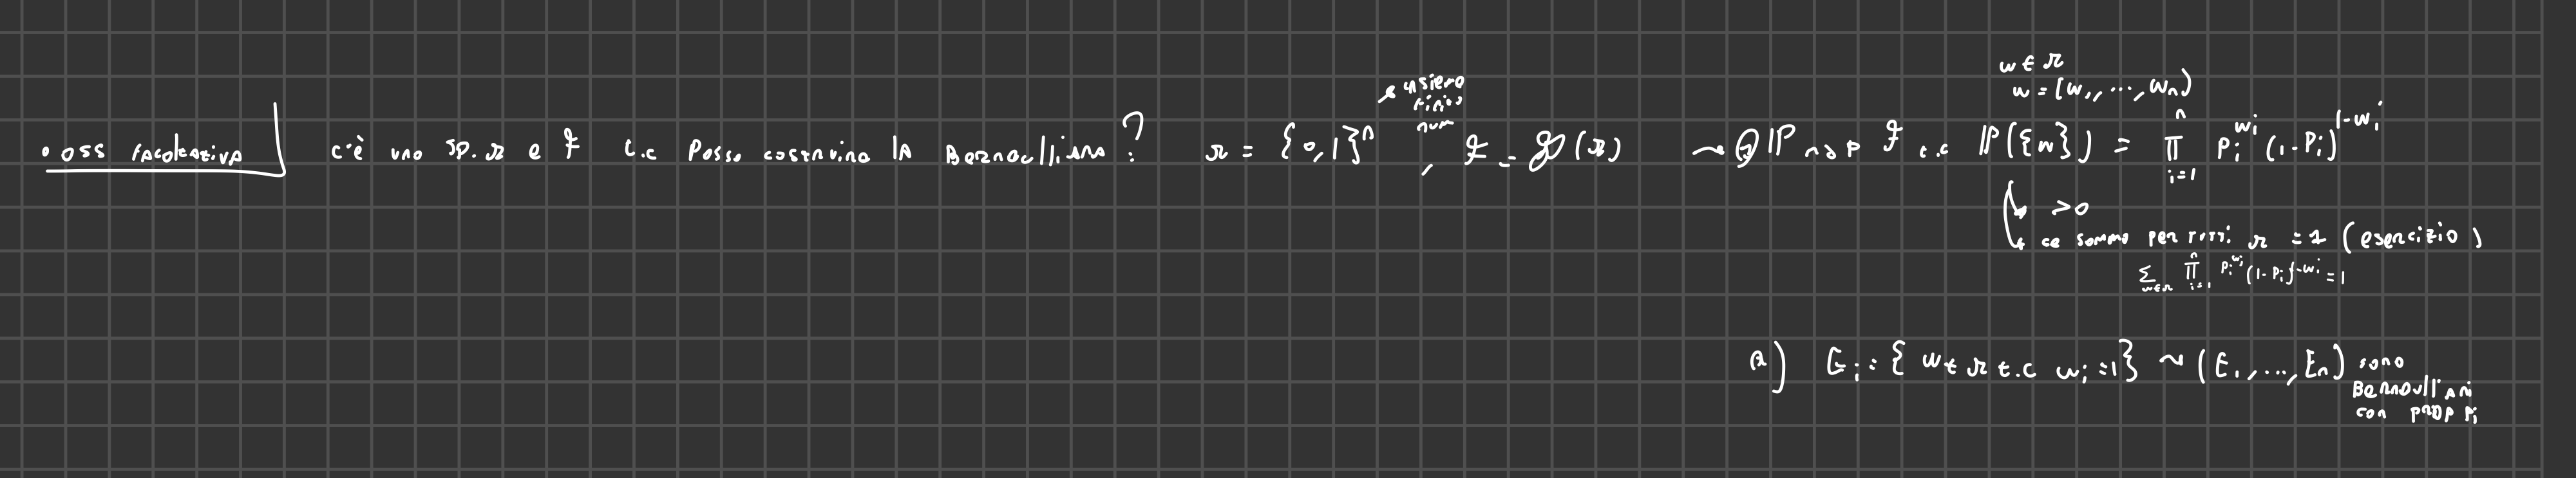 • OSS FACOLTATIVA c'è uno SP. Ω e F t.c Posso costruire la Bernoulliana? Ω = {0,1}ⁿ, F = P(Ω) ⇝ ∃ P su F t.c P({w}) = ∏ᵢ₌₁ⁿ Pᵢ^{wᵢ} (1-Pᵢ)^{1-wᵢ}
insieme
finito
num
w ∈ Ω
w = (w₁, ..., wₙ)
> 0
se sommo per tutti Ω = 1 (esercizio)
∑_{w∈Ω} ∏ᵢ₌₁ⁿ Pᵢ^{wᵢ} (1-Pᵢ)^{1-wᵢ} = 1
Eᵢ = { w ∈ Ω t.c wᵢ = 1 } ⇝ (E₁, ..., Eₙ) sono
Bernoulliani
con prop Pᵢ